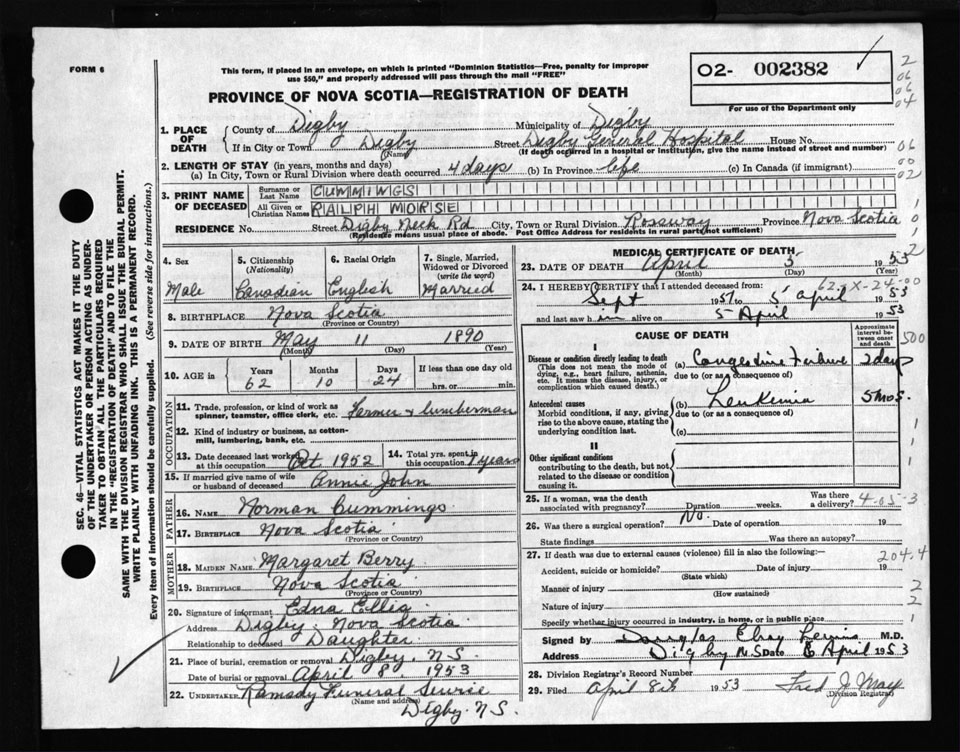 FORM 6
This form, if placed in an envelope, on which is printed "Dominion Statistics—Free, penalty for improper
use $50," and properly addressed will pass through the mail "FREE"
PROVINCE OF NOVA SCOTIA—REGISTRATION OF DEATH
02- 002382
For use of the Department only
2
06
06
04
1. PLACE OF DEATH { County of Digby Municipality of Digby
If in City or Town of Digby (Name) Street Digby General Hospital House No.
(If death occurred in a hospital or institution, give name instead of street and number)
06
2. LENGTH OF STAY (in years, months and days)
00
(a) In City, Town or Rural Division where death occurred 4 days (b) In Province life (c) In Canada (if immigrant)
02
3. PRINT NAME OF DECEASED { Surname or Last Name CUMMINGS
All Given or Christian Names RALPH MORSE
1
RESIDENCE No. Street Digby Neck Rd City, Town or Rural Division Rossway Province Nova Scotia
(Residence means usual place of abode. Post Office Address for residents in rural parts not sufficient)
0
1
4. Sex Male
5. Citizenship (Nationality) Canadian
6. Racial Origin English
7. Single, Married, Widowed or Divorced (write the word) Married
8. BIRTHPLACE Nova Scotia
(Province or Country)
9. DATE OF BIRTH May 11 1890
(Month) (Day) (Year)
10. AGE { Years 62 Months 10 Days 24 If less than one day old hrs. or min.
OCCUPATION
11. Trade, profession, or kind of work as spinner, teamster, office clerk, etc. Farmer & lumberman
12. Kind of industry or business, as cotton-mill, lumbering, bank, etc.
13. Date deceased last worked at this occupation Oct 1952
14. Total yrs. spent in this occupation years
15. If married give name of wife or husband of deceased Annie John
FATHER
16. NAME Norman Cummings
17. BIRTHPLACE Nova Scotia
(Province or Country)
MOTHER
18. MAIDEN NAME Margaret Berry
19. BIRTHPLACE Nova Scotia
(Province or Country)
20. Signature of informant Edna Ellis
Address Digby Nova Scotia
Relationship to deceased Daughter
21. Place of burial, cremation or removal Digby, N.S.
Date of burial or removal April 8, 1953
22. UNDERTAKER Ramsay Funeral Service
(Name and address)
Digby N.S.
MEDICAL CERTIFICATE OF DEATH
2
23. DATE OF DEATH April 5 1953
(Month) (Day) (Year)
24. I HEREBY CERTIFY that I attended deceased from:
62 X-24-00
Sept 195 to 5 April 1953
and last saw h im alive on 5 April 1953
CAUSE OF DEATH
Approximate interval between onset and death
500
I
Disease or condition directly leading to death
(This does not mean the mode of dying, e.g., heart failure, asthenia, etc. It means the disease, injury, or complication which caused death.)
(a) Congestive Failure 2 days
due to (or as a consequence of)
Antecedent causes
Morbid conditions, if any, giving rise to the above cause, stating the underlying condition last.
(b) Leukemia 5 mos.
due to (or as a consequence of)
(c)
1
1
1
II
Other significant conditions
contributing to the death, but not related to the disease or condition causing it.
25. If a woman, was the death associated with pregnancy? Duration weeks. Was there a delivery? 4-05-3
26. Was there a surgical operation? No. Date of operation 19
State findings Was there an autopsy?
27. If death was due to external causes (violence) fill in also the following:—
204.4
Accident, suicide or homicide? (State which) Date of injury 19
Manner of injury (How sustained)
2
Nature of injury
2
Specify whether injury occurred in industry, in home, or in public place
1
Signed by Douglas Lewis M.D.
Address Digby N.S. Date 6 April 1953
28. Division Registrar's Record Number
29. Filed April 8th 1953 Fred J. May
(Division Registrar)
SEC. 46—VITAL STATISTICS ACT MAKES IT THE DUTY
OF THE UNDERTAKER OR PERSON ACTING AS UNDER-
TAKER TO OBTAIN ALL THE PARTICULARS REQUIRED
IN THE "REGISTRATION OF DEATH" AND TO FILE THE
SAME WITH THE DIVISION REGISTRAR WHO SHALL ISSUE THE BURIAL PERMIT.
WRITE PLAINLY WITH UNFADING INK. THIS IS A PERMANENT RECORD.
Every item of information should be carefully supplied. (See reverse side for instructions.)